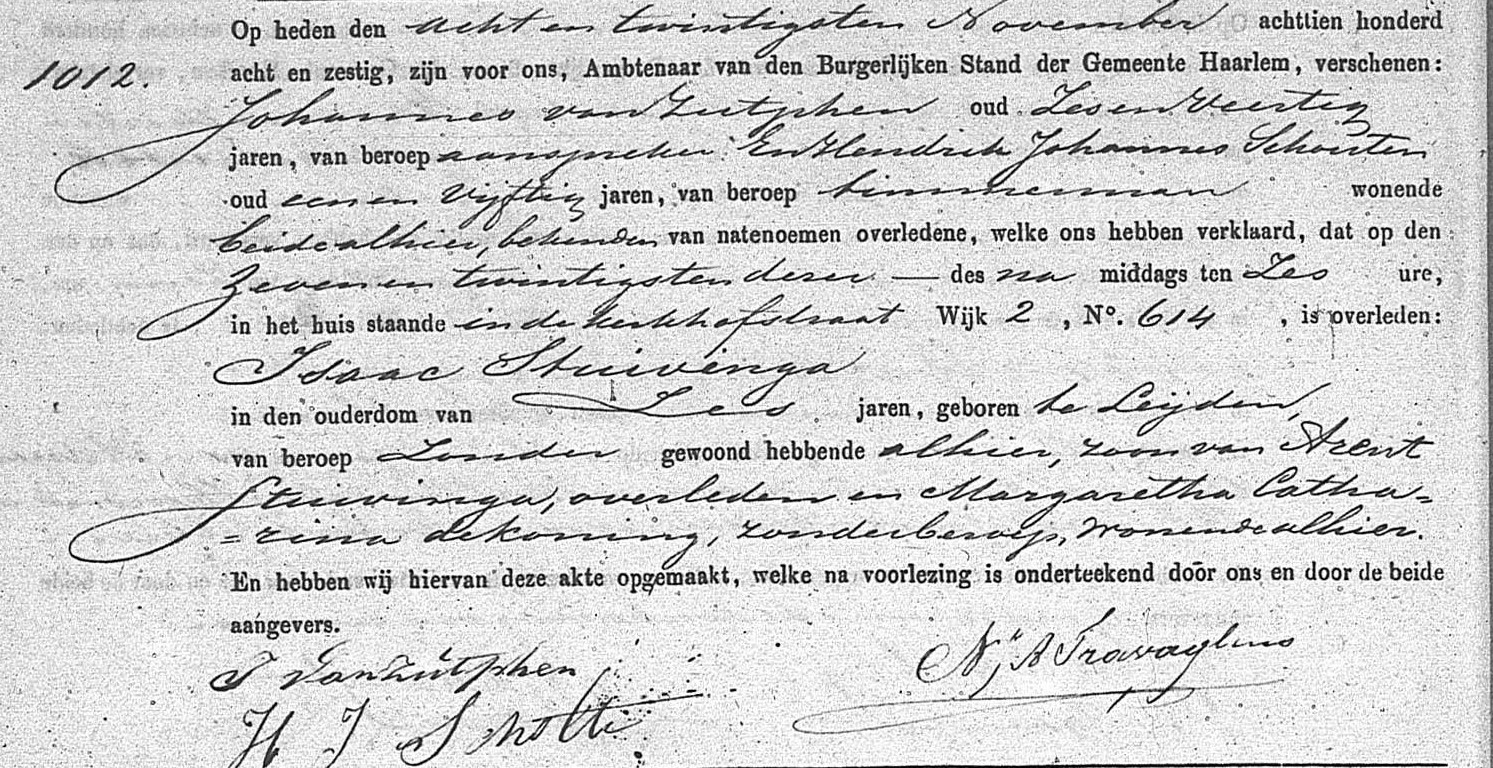 Op heden den acht en twintigsten November achttien honderd
1012. acht en zestig, zijn voor ons, Ambtenaar van den Burgerlijken Stand der Gemeente Haarlem, verschenen:
Johannes van Zutphen oud Zes en Veertig
jaren, van beroep aanspreker En Hendrik Johannes Schouten
oud een en Vijftig jaren, van beroep timmerman wonende
beide alhier, bekenden van natenoemen overledene, welke ons hebben verklaard, dat op den
Zeven en twintigsten dezer — des na middags ten Zes ure,
in het huis staande in de kerkhofstraat Wijk 2, No. 614, is overleden:
Isaac Stuivinga
in den ouderdom van Zes jaren, geboren te Leijden,
van beroep Zonder gewoond hebbende alhier, zoon van Arent
Stuivinga, overleden en Margaretha Catha=
=rina de koning, zonder beroep, wonende alhier.
En hebben wij hiervan deze akte opgemaakt, welke na voorlezing is onderteekend door ons en door de beide
aangevers.
J Van Zutphen
H J